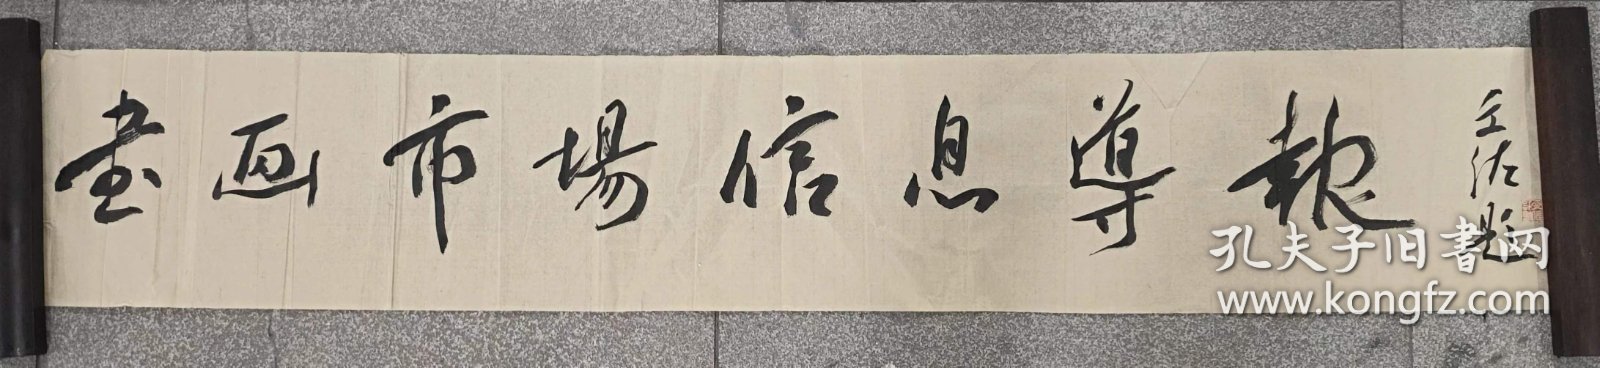 書画市場信息導報
王佐題
孔夫子旧書网
www.kongfz.com